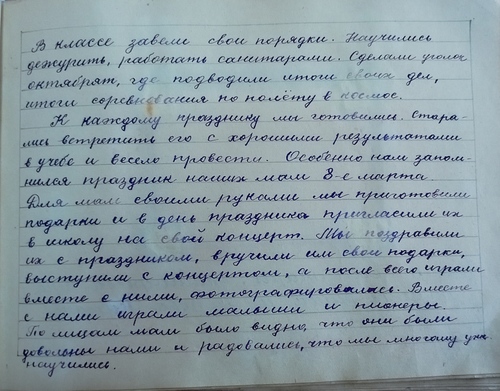 В классе завели свои порядки. Научились
дежурить, работать санитарами. Сделали уголок
октябрят, где подводили итоги своих дел,
итоги соревнования по полёту в космос.
К каждому празднику мы готовились. Стара-
лись встретить его с хорошими результатами
в учебе и весело провести. Особенно нам запом-
нился праздник наших мам 8-е марта.
Для мам своими руками мы приготовили
подарки и в день праздника пригласили их
в школу на свой концерт. Мы поздравили
их с праздником, вручили им свои подарки,
выступили с концертом, а после всего играли
вместе с ними, фотографировались. Вместе
с нами играли малыши и пионеры.
По лицам мам было видно, что они были
довольны нами и радовались, что мы многому уже
научились.